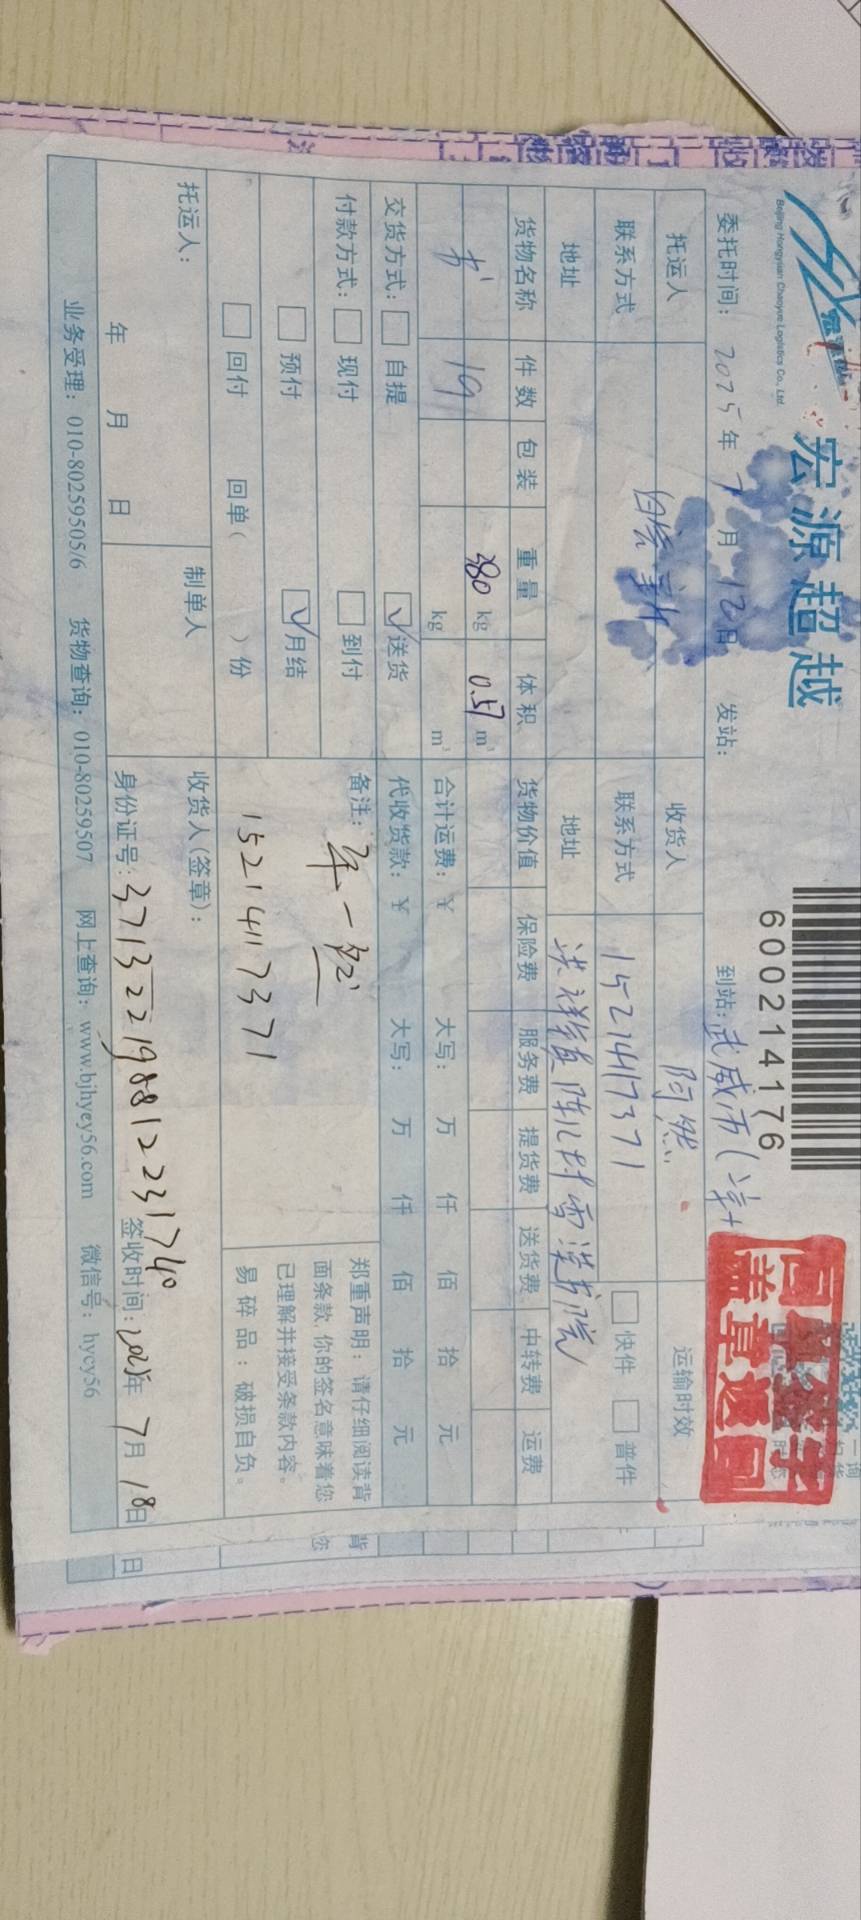 宏源超越
Beijing Hongyuan Chaoyue Logistics Co., Ltd.
600214176
回单签字
盖章返回
委托时间: 2025年7月12日 发站: 到站: 武威市(
托运人 收货人 运输时效
联系方式 联系方式 15214117371 快件 普件
地址 地址 洪祥镇陈儿村雪漠书院
货物名称 件数 包装 重量 体积 货物价值 保险费 服务费 提货费 送货费 中转费 运费
书 19 380 kg 0.57 m³
kg m³ 合计运费: ¥ 大写: 万 仟 佰 拾 元
交货方式: 自提 送货 代收货款: ¥ 大写: 万 仟 佰 拾 元
付款方式: 现付 到付
预付 月结
回付 回单( )份
备注:
15214117371
郑重声明: 请仔细阅读背
面条款, 你的签名意味着您
已理解并接受条款内容。
易碎品: 破损自负。
托运人: 制单人 收货人(签章):
年 月 日 身份证号: 371322198812231740 签收时间: 2025年7月18日
业务受理: 010-80259505/6 货物查询: 010-80259507 网上查询: www.bjhyey56.com 微信号: hycy56